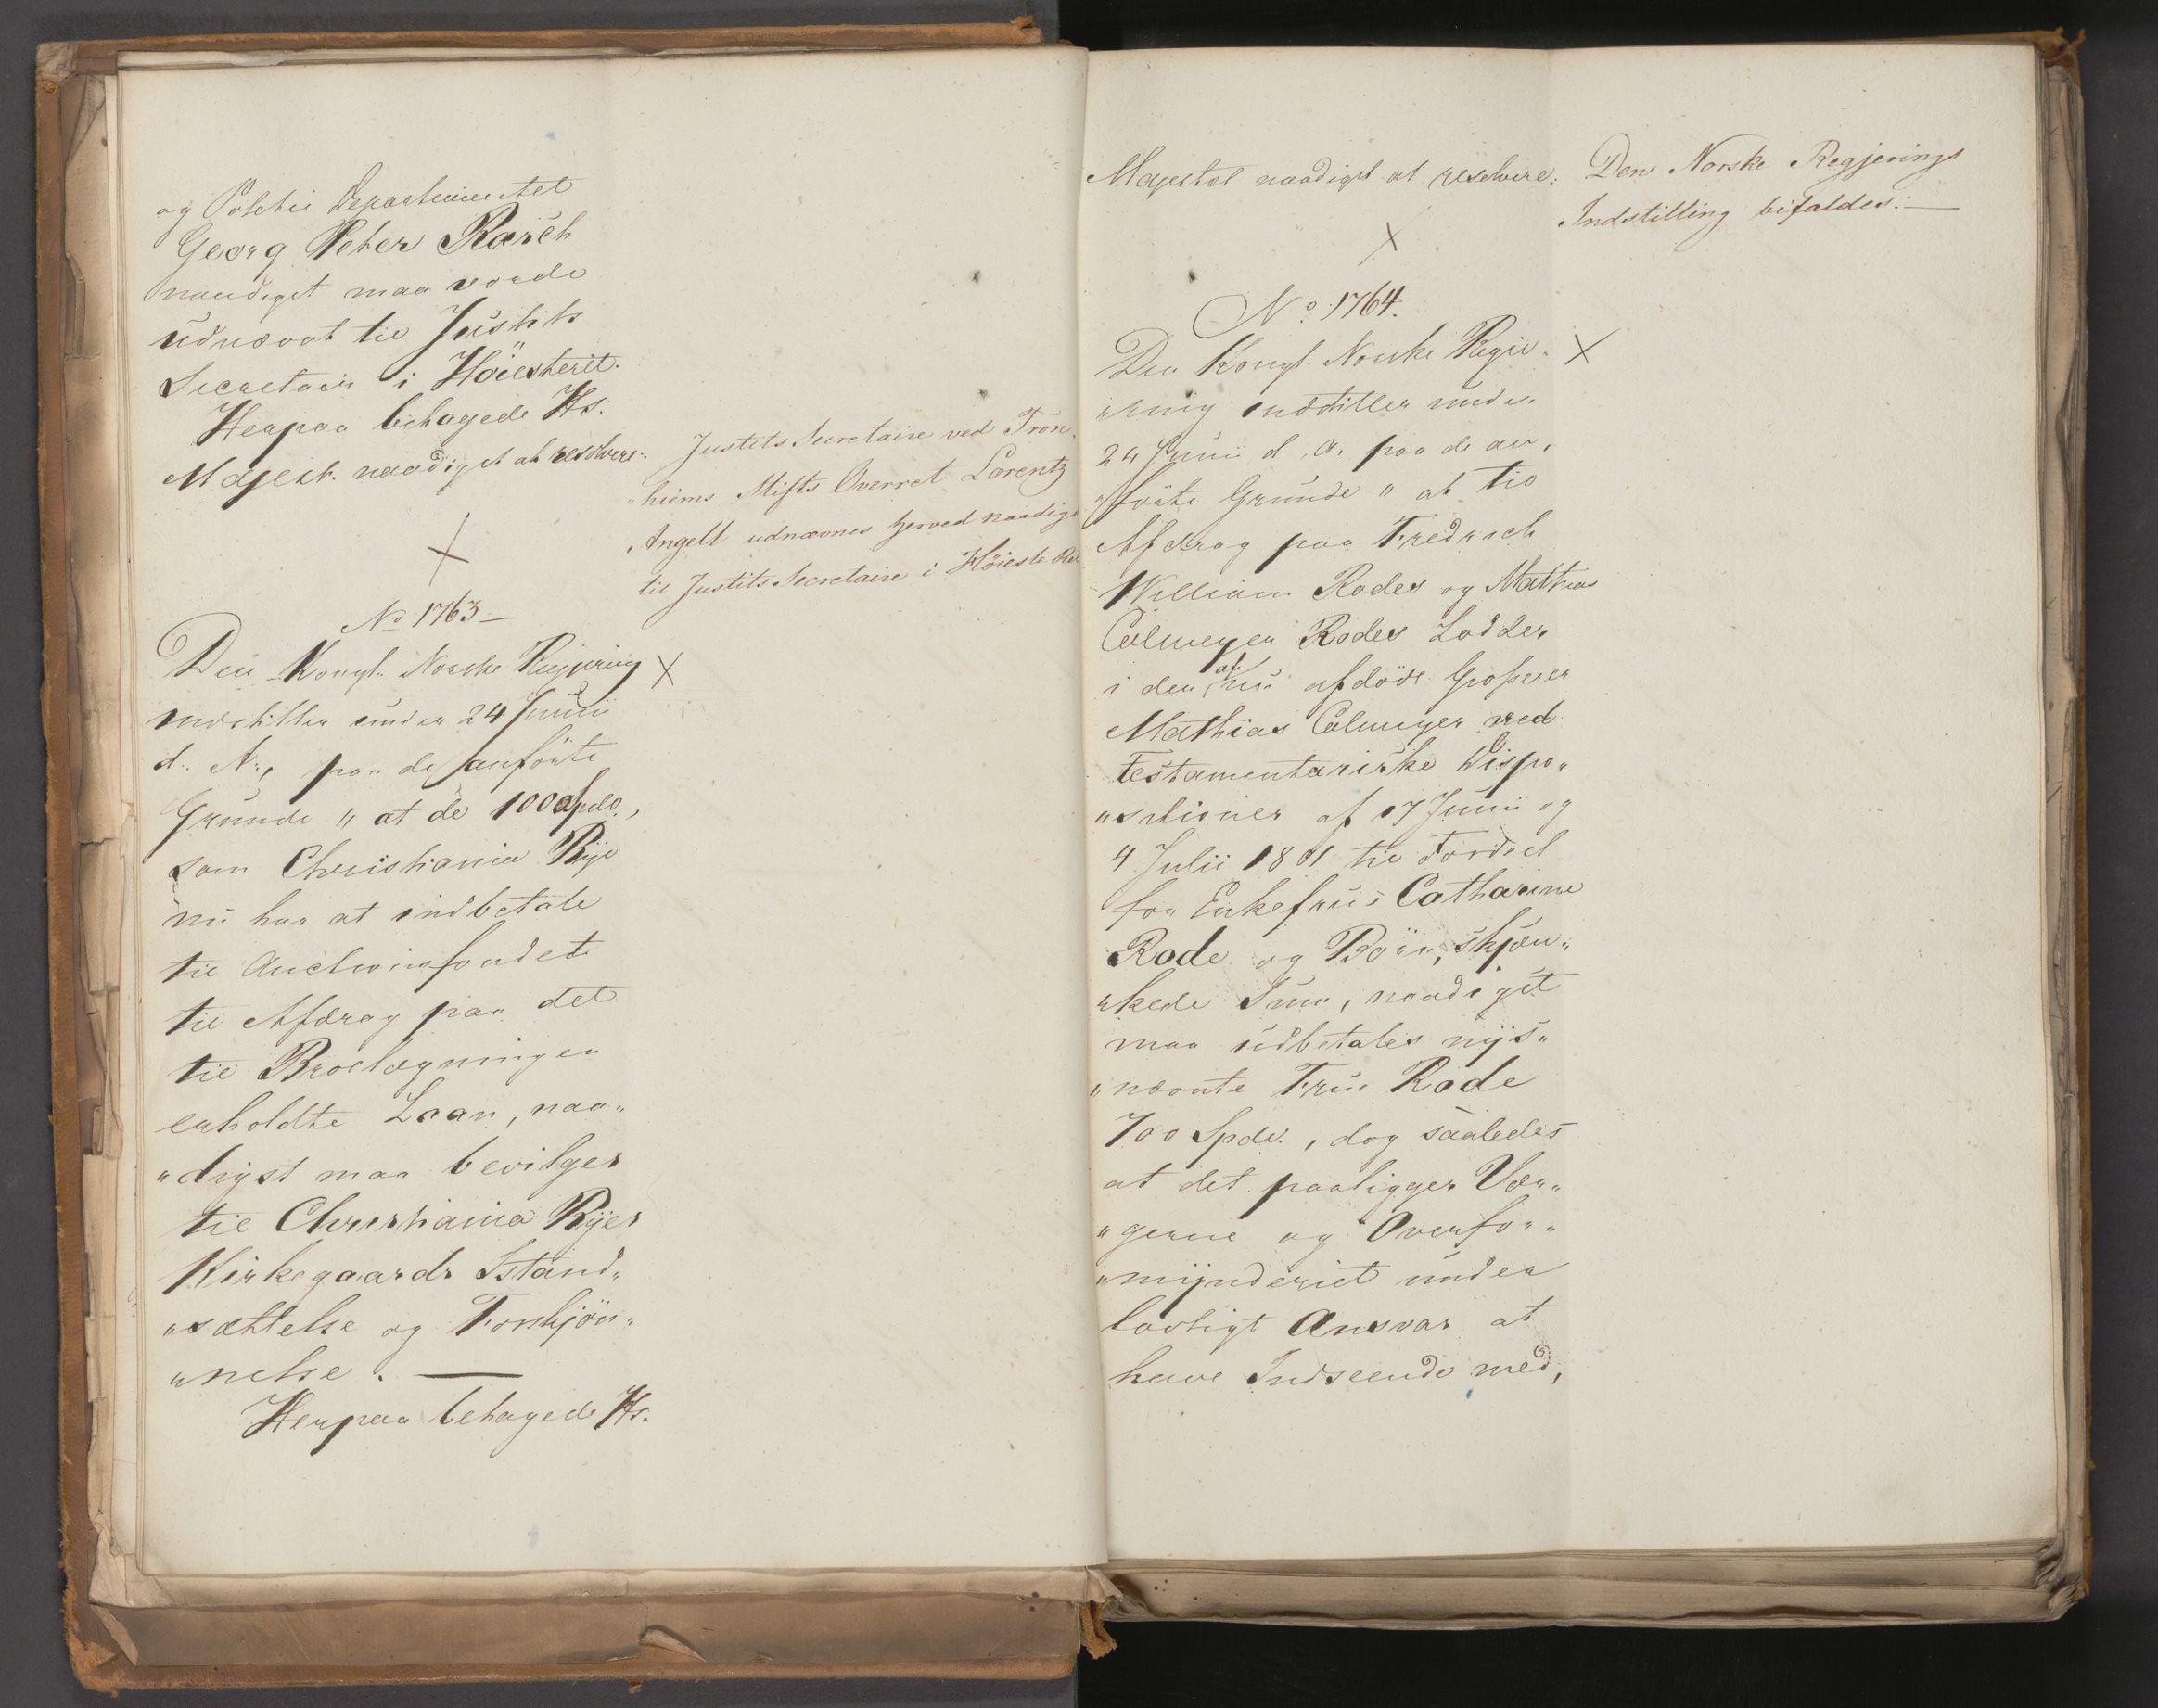 og Politie Departementet
Georg Peter Rasch
naadigst maa vorde
udnævnt til Justits
Secretair i Höiesteret.
Herpaa behagede Hs.
Majest. naadigst at resolvere:
Justits Secretaire ved Tron„
„hiems Stifts Overret Lorentz
Angell udnævnes herved naadigst
til Justits Secretaire i Höieste Ret
No 1763 –
Den Kongl. Norske Regjering
indstiller under 24 Junii
d. A., paa de anförte
Grunde „ at de 100 Spd.,
som Christiania Bye
nu har at indbetale
til Auctionsfondet
til Afdrag paa det
til Brolægningen
erholdte Laan, naa„
„digst maa bevilges
til Christiania Byes
Kirkegaards Istand„
„sættelse og Forskjön„
„nelse. —
Herpaa behagede Hs.
Majestæt naadigst at resolvere:
Den Norske Regjerings
Indstilling bifaldes: —
No 1764.
Den Kongl. Norske Regie„
„ring indstiller under
24 Junii d. A. paa de an„
„förte Grunde „ at til
Afdrag paa Fredrich
William Rodes og Mathias
Calmeyer Rodes Lodder
i den af nu afdöde Grosserer
Mathias Calmeyer ved
testamentariske Dispo„
„sitioner af 17 Junii og
4 Julii 18 1 til Fordeel
for Enkefrue Catharine
Rode og Börn, skjæn„
„kede Sum, naadigst
maa udbetales nys„
„nævnte Frue Rode
700 Spdr., dog saaledes
at det paaligger Vær„
„gerne og Overfor„
„mynderiet under
lovligt Ansvar at
have Indseende med,